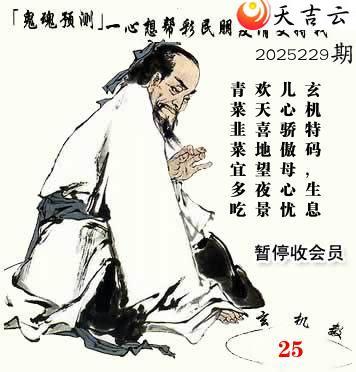 「鬼魂预测」一心想帮彩民朋
天吉云
2025229期
玄机特码,生息
儿心骄傲母心忧
欢天喜地望夜景
青菜韭菜宜多吃
暂停收会员
玄机数
25